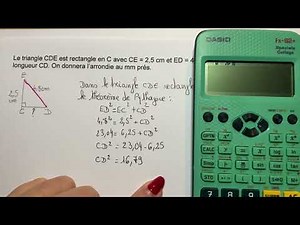 Le triangle CDE est rectangle en C avec CE = 2,5 cm et ED = 4
longueur CD. On donnera l'arrondie au mm près.
Dans le triangle CDE rectangle
le théorème de Pythagore :
ED² = EC² + CD²
4,8² = 2,5² + CD²
23,04 = 6,25 + CD²
CD² = 23,04 - 6,25
CD² = 16,79
E
2,5
cm
4,8cm
C
?
D
CASIO
7
8
9